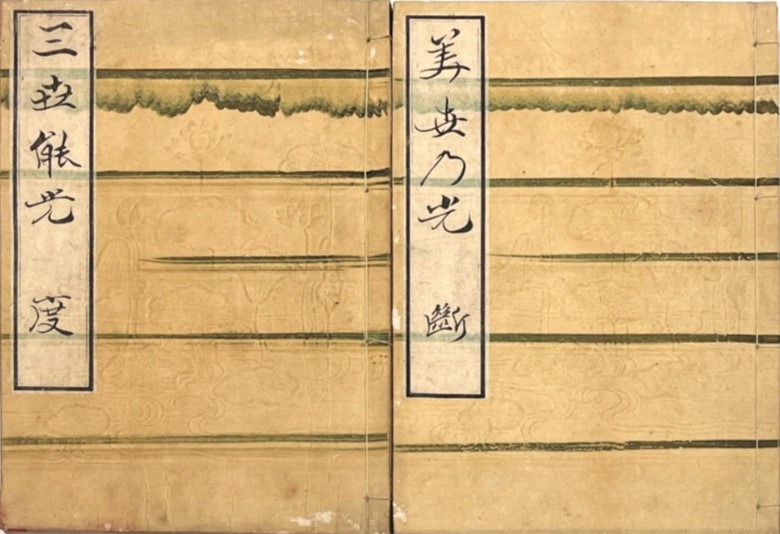 美世乃光 斷
三世能光 度